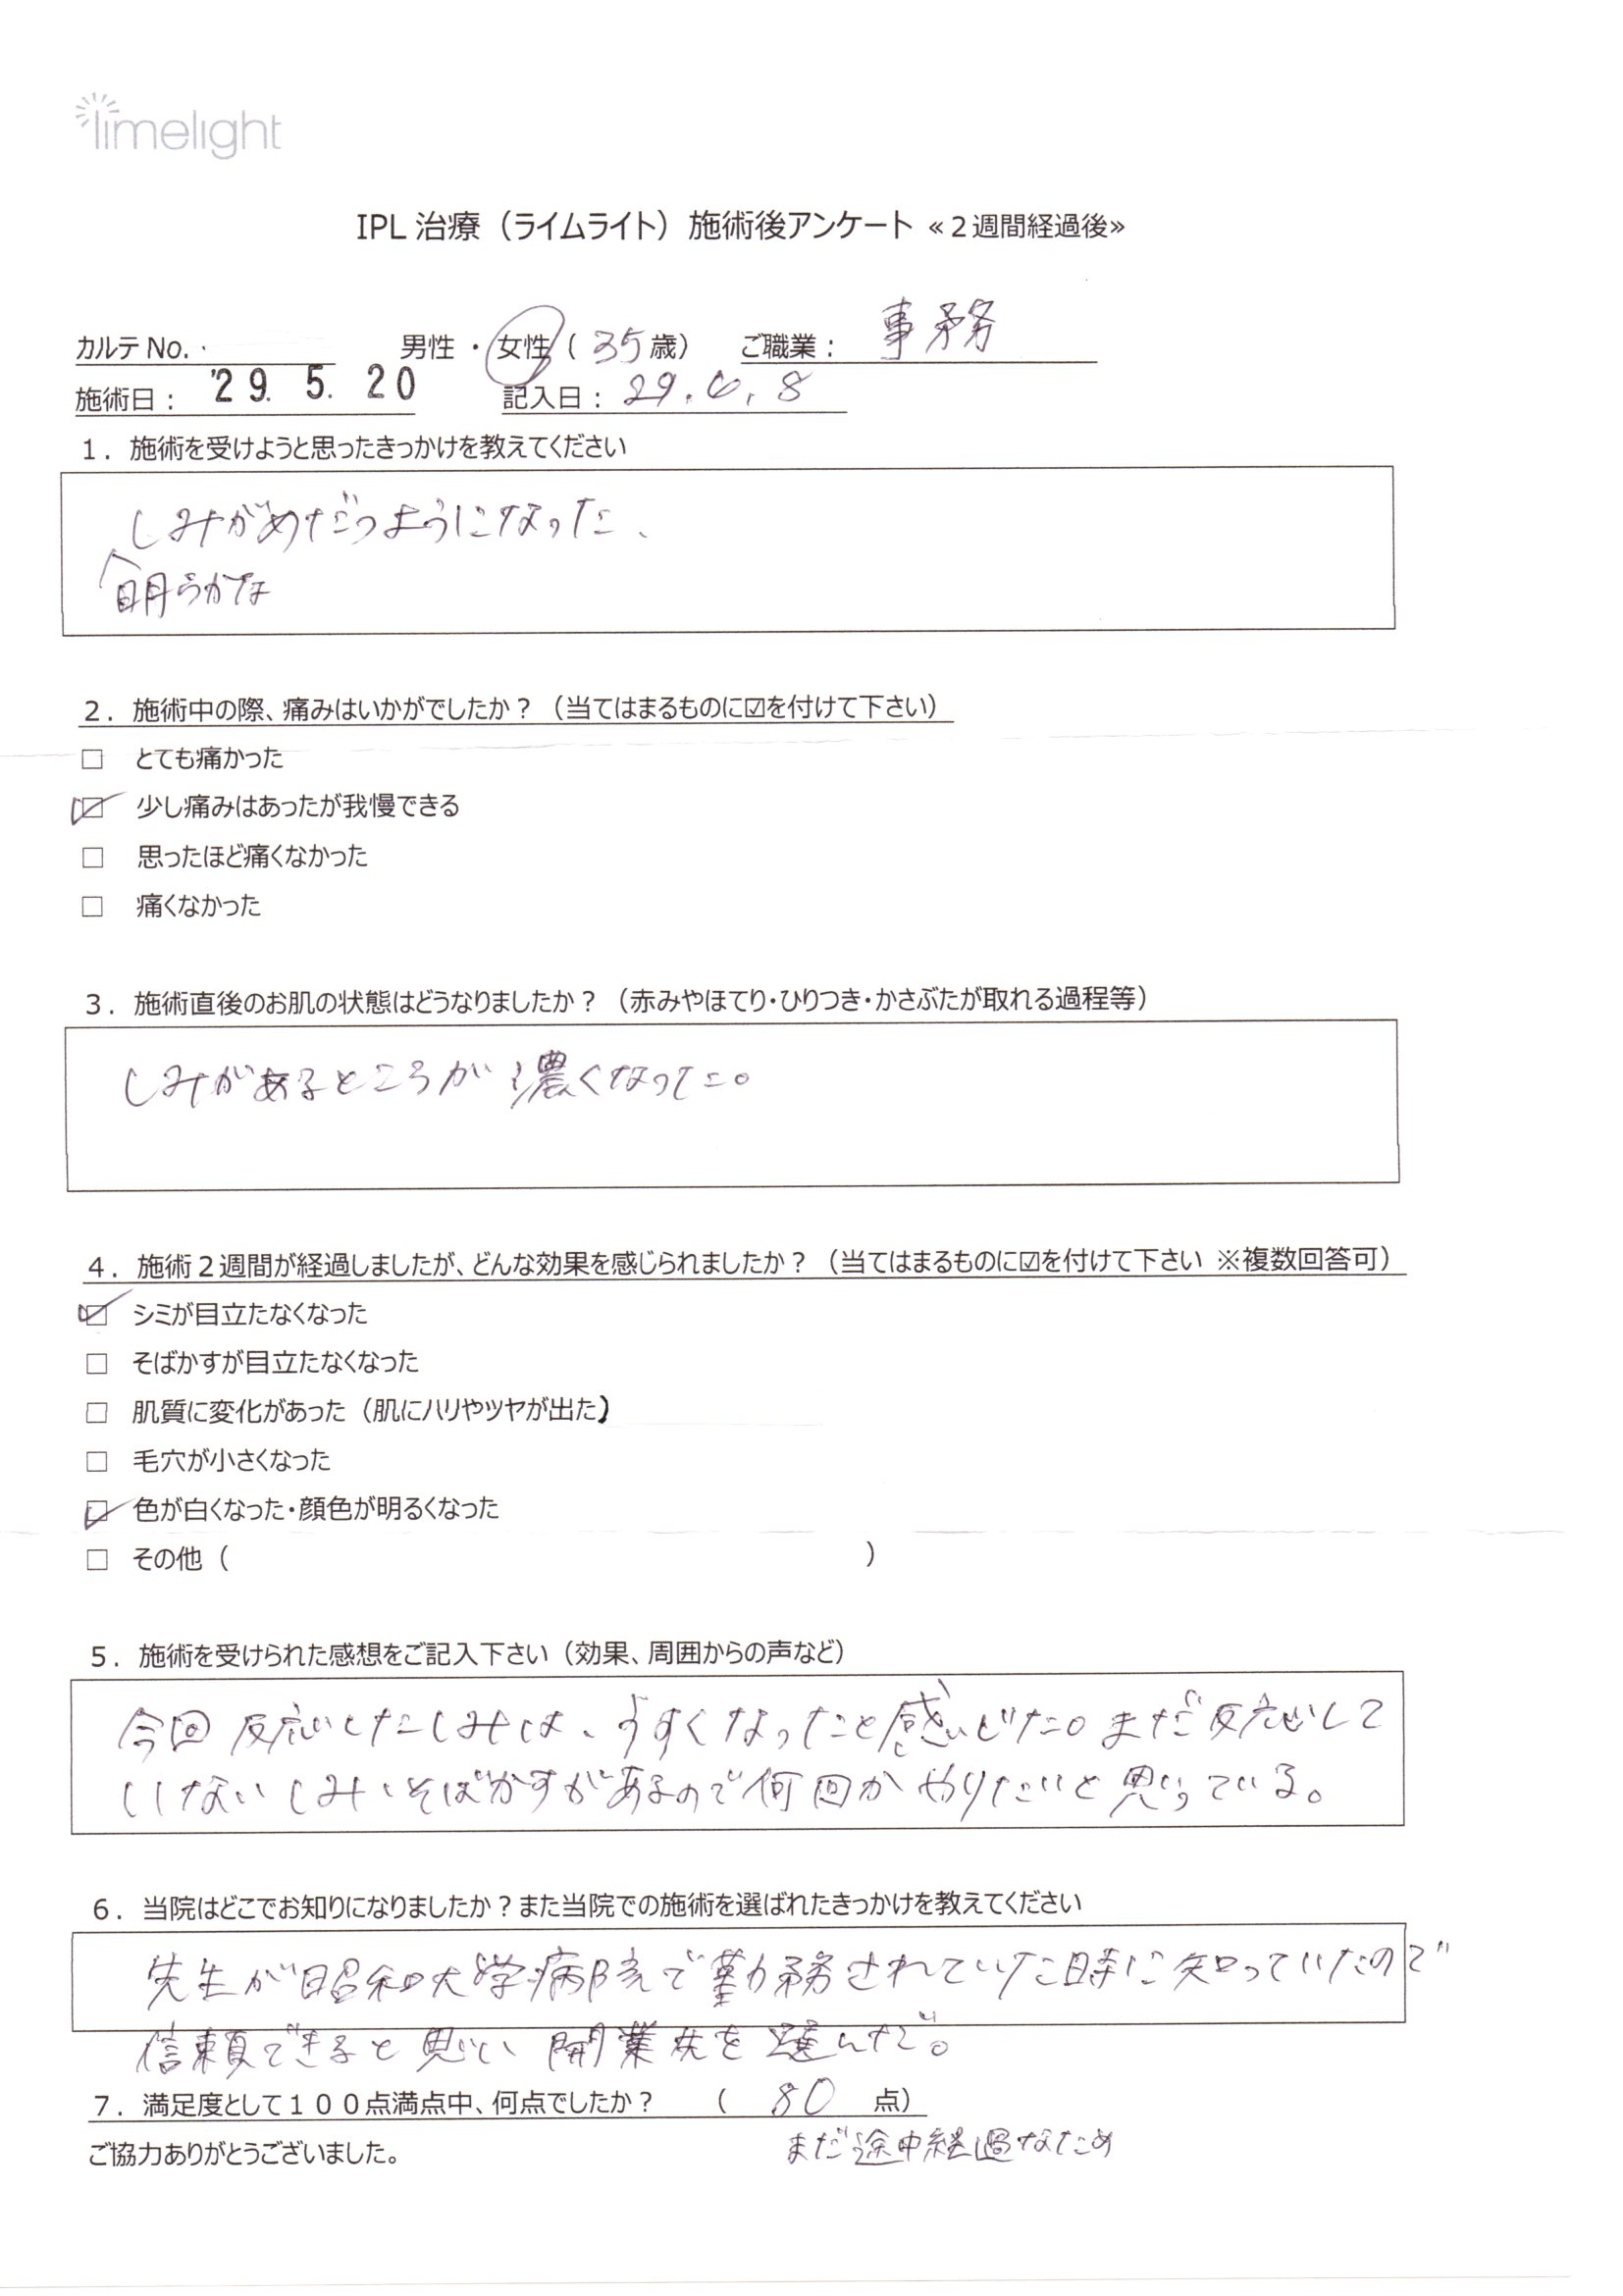 limelight
IPL 治療（ライムライト）施術後アンケート ≪２週間経過後≫
カルテ No. 男性 ・ 女性（ 35 歳） ご職業： 事務
施術日： '29. 5. 20 記入日： 29. 6. 8
１．施術を受けようと思ったきっかけを教えてください
しみがめだつようになった、
明らかな
２．施術中の際、痛みはいかがでしたか？（当てはまるものに☑を付けて下さい）
□ とても痛かった
☑ 少し痛みはあったが我慢できる
□ 思ったほど痛くなかった
□ 痛くなかった
３．施術直後のお肌の状態はどうなりましたか？（赤みやほてり・ひりつき・かさぶたが取れる過程等）
しみがあるところが濃くなった。
４．施術２週間が経過しましたが、どんな効果を感じられましたか？（当てはまるものに☑を付けて下さい ※複数回答可）
☑ シミが目立たなくなった
□ そばかすが目立たなくなった
□ 肌質に変化があった（肌にハリやツヤが出た）
□ 毛穴が小さくなった
☑ 色が白くなった・顔色が明るくなった
□ その他（ ）
５．施術を受けられた感想をご記入下さい（効果、周囲からの声など）
今回反応したしみは、うすくなったと感じた。まだ反応して
いないしみ、そばかすがあるので何回かやりたいと思っている。
６．当院はどこでお知りになりましたか？また当院での施術を選ばれたきっかけを教えてください
先生が昭和大学病院で勤務されていた時に知っていたので
信頼できると思い開業先を選んだ。
７．満足度として１００点満点中、何点でしたか？ （ 80 点）
ご協力ありがとうございました。 まだ途中経過なため